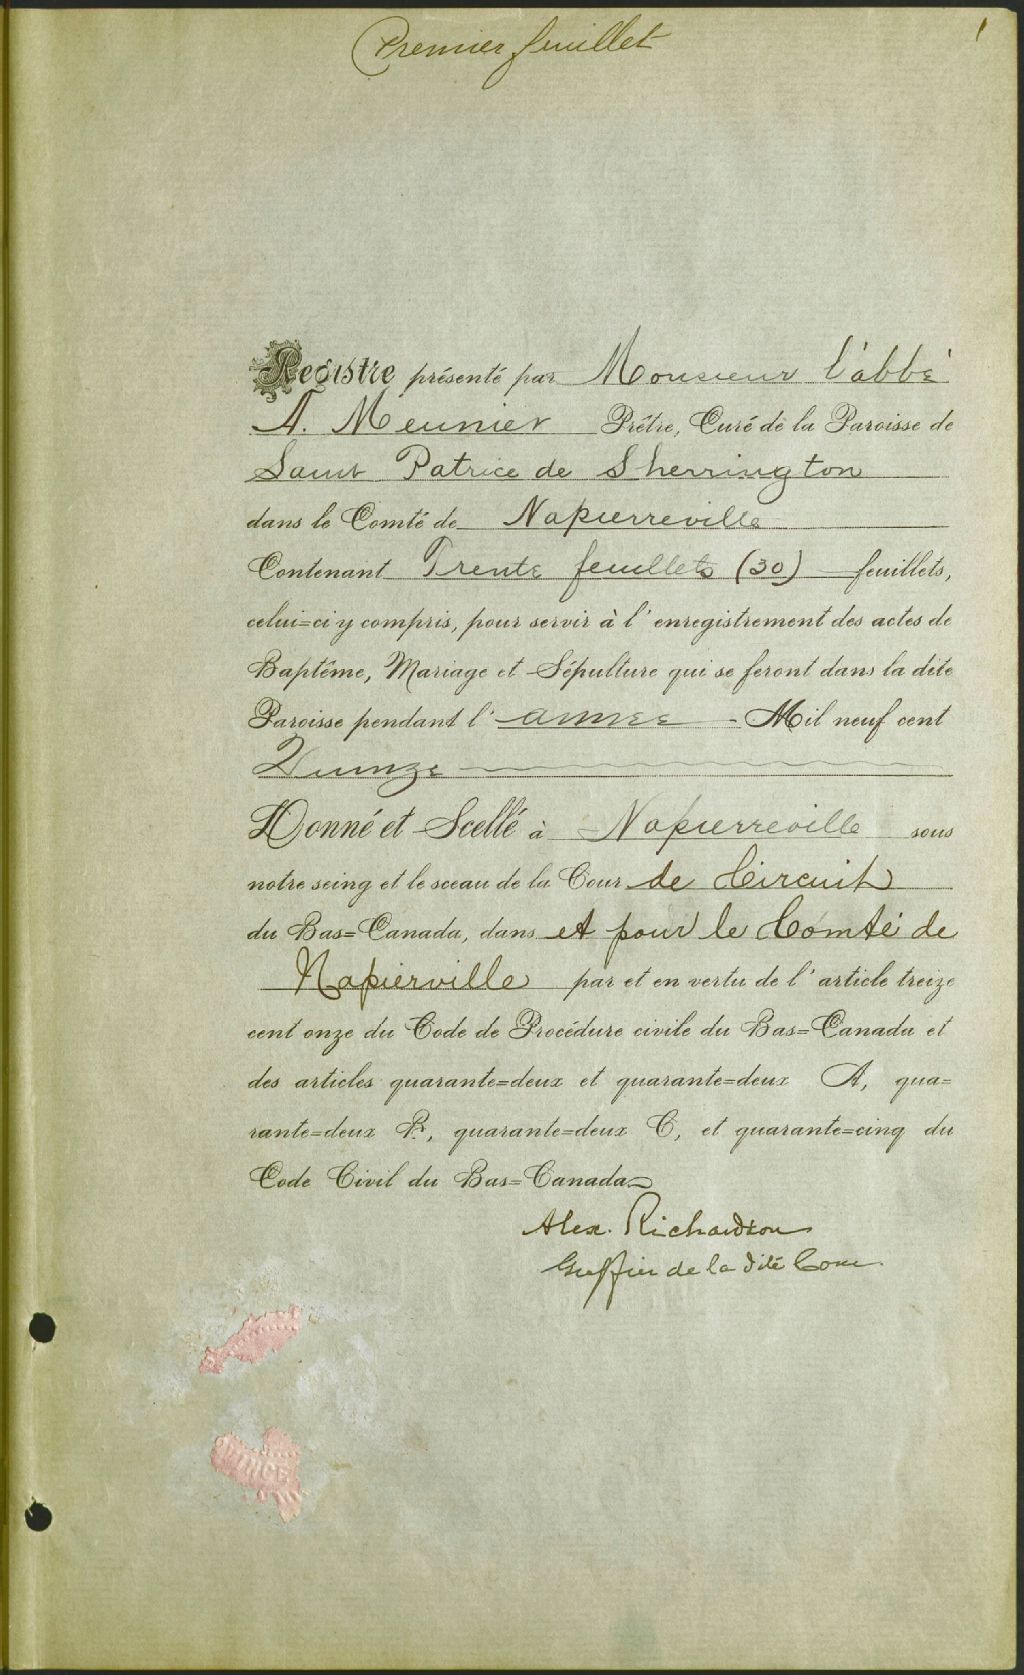 Premier feuillet
1
Registre présenté par Monsieur l'abbé
A. Meunier Prêtre, Curé de la Paroisse de
Saint Patrice de Sherrington
dans le Comté de Napierreville
Contenant Trente feuillets (30) feuillets,
celui=ci y compris, pour servir à l'enregistrement des actes de
Baptême, Mariage et Sépulture qui se feront dans la dite
Paroisse pendant l'année - Mil neuf cent
Quinze
Donné et Scellé à Napierreville sous
notre seing et le sceau de la Cour de Circuit
du Bas=Canada, dans et pour le Comté de
Napierville par et en vertu de l'article treize
cent onze du Code de Procédure civile du Bas=Canada et
des articles quarante=deux et quarante=deux A, qua=
rante=deux B, quarante=deux C, et quarante=cinq du
Code Civil du Bas=Canada
Alex. Richardson
Greffier de la dite Cour